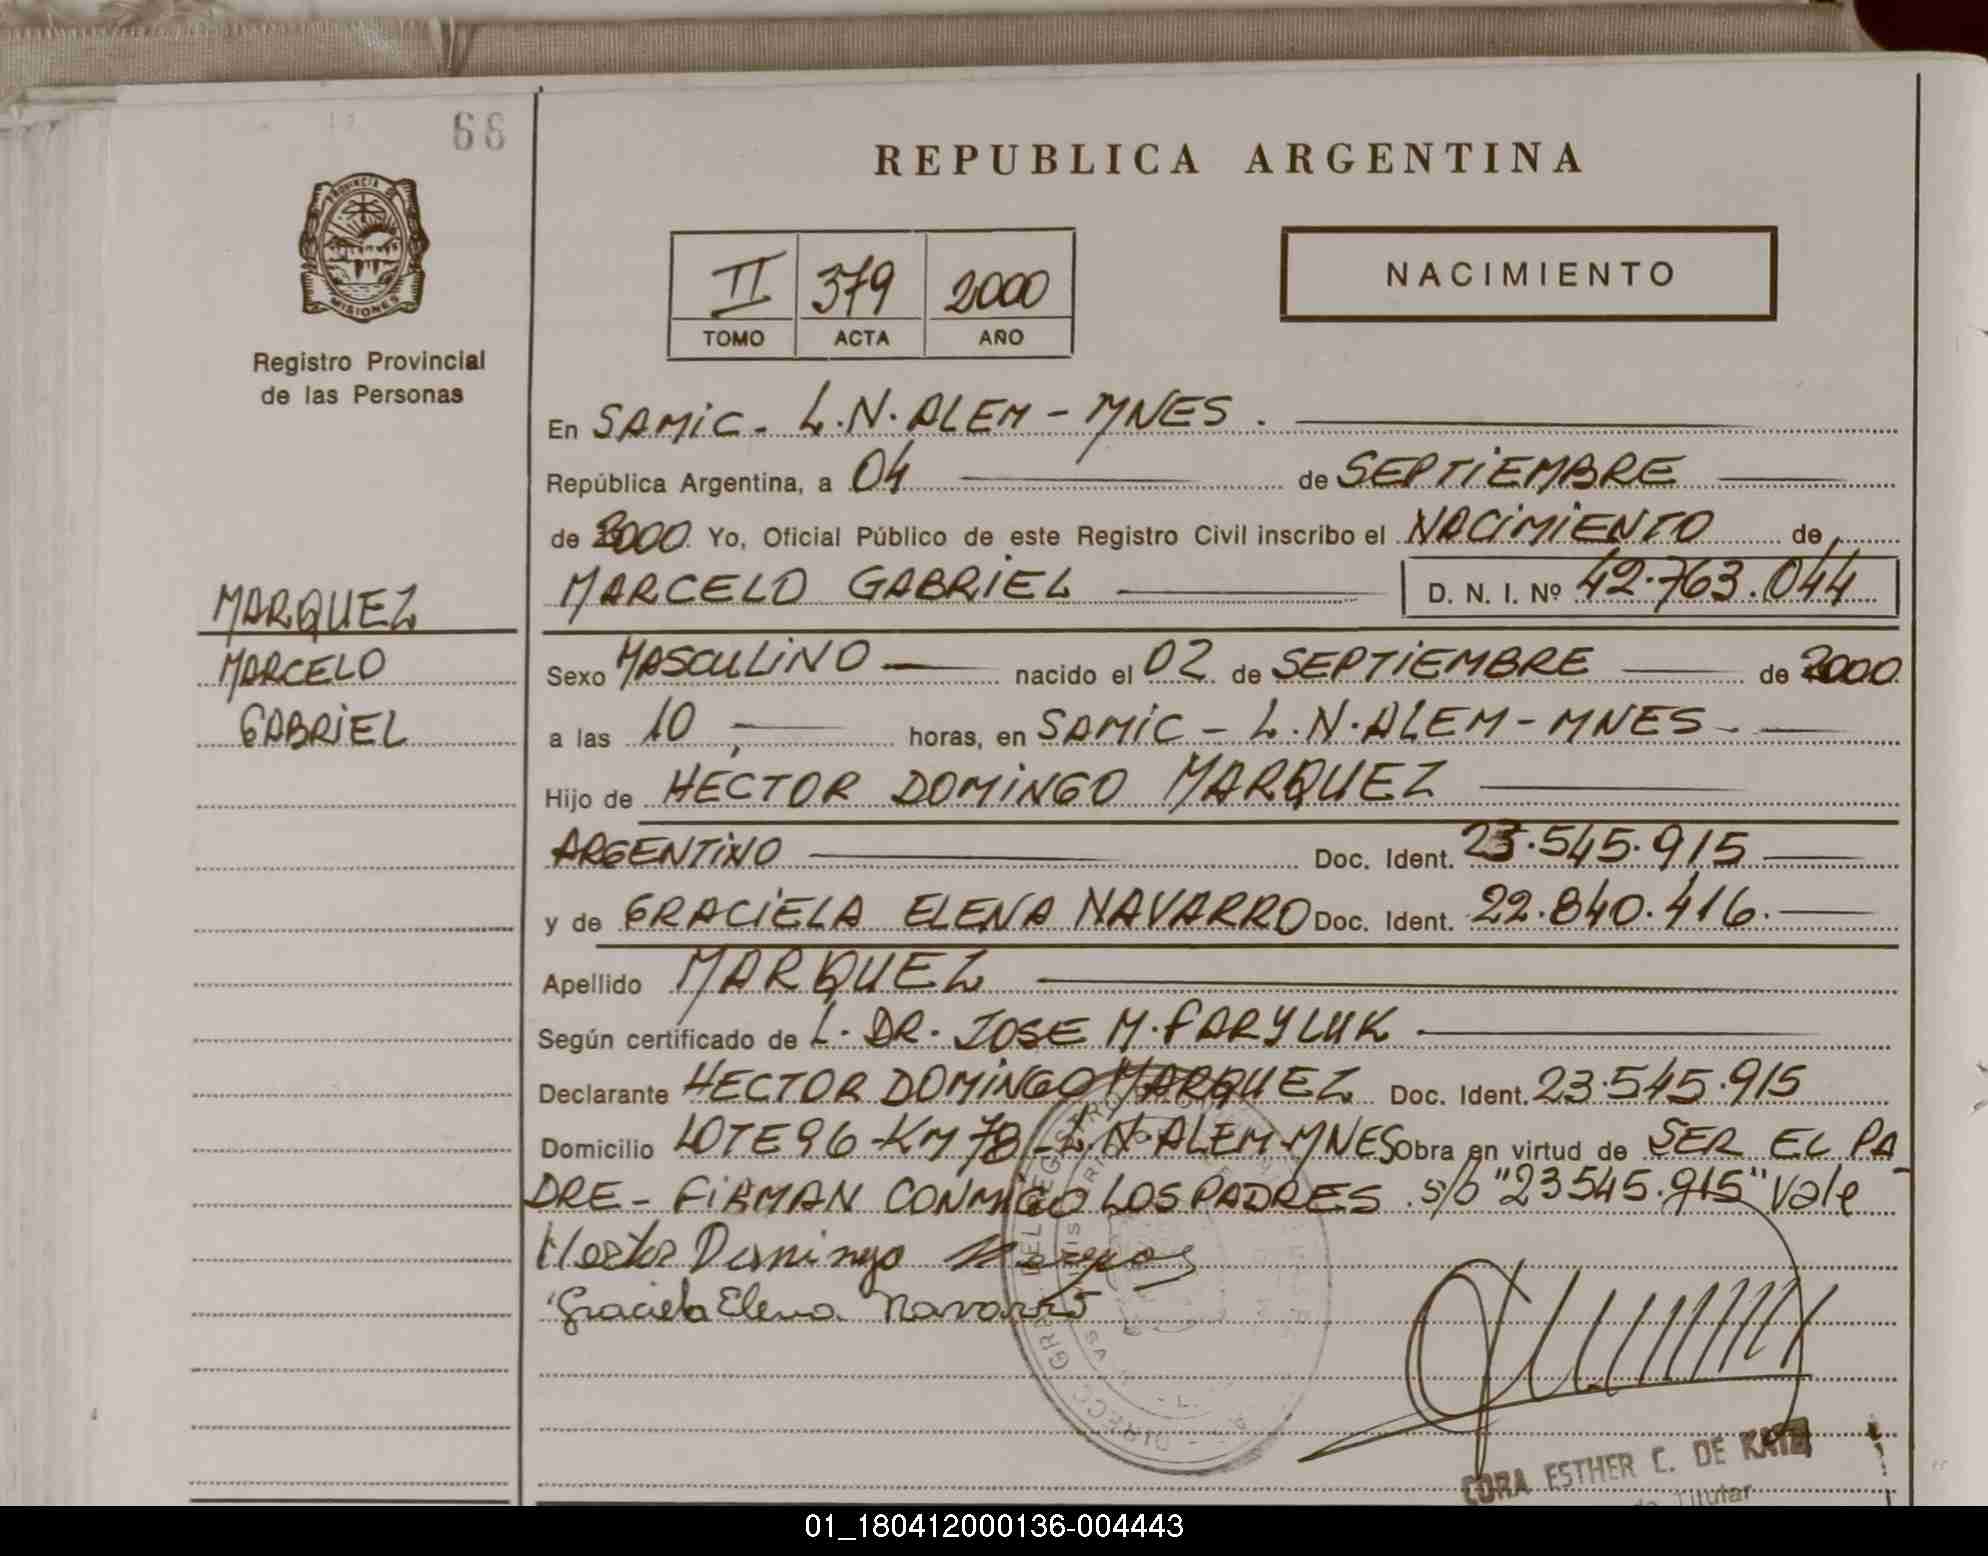 66
REPUBLICA ARGENTINA
PROVINCIA DE
MISIONES
Registro Provincial
de las Personas
II 379 2000
TOMO ACTA AÑO
NACIMIENTO
En SAMIC - L.N. ALEM - MNES.
República Argentina, a 04 de SEPTIEMBRE
de 2000. Yo, Oficial Público de este Registro Civil inscribo el NACIMIENTO de
MARCELO GABRIEL D. N. I. Nº 42.763.044
MARQUEZ
MARCELO
GABRIEL
Sexo MASCULINO nacido el 02 de SEPTIEMBRE de 2000
a las 10 horas, en SAMIC - L.N. ALEM - MNES -
Hijo de HECTOR DOMINGO MARQUEZ
ARGENTINO Doc. Ident. 23.545.915
y de GRACIELA ELENA NAVARRO Doc. Ident. 22.840.416.
Apellido MARQUEZ
Según certificado de L. DR. JOSE M. FARYLUK
Declarante HECTOR DOMINGO MARQUEZ Doc. Ident. 23.545.915
Domicilio LOTE 96 - KM 78 - L.N. ALEM - MNES Obra en virtud de SER EL PA
DRE - FIRMAN CONMIGO LOS PADRES. s/b "23545.915" Vale
Hector Domingo
Graciela Elena Navarro
CORA ESTHER C. DE
Titular
01_180412000136-004443